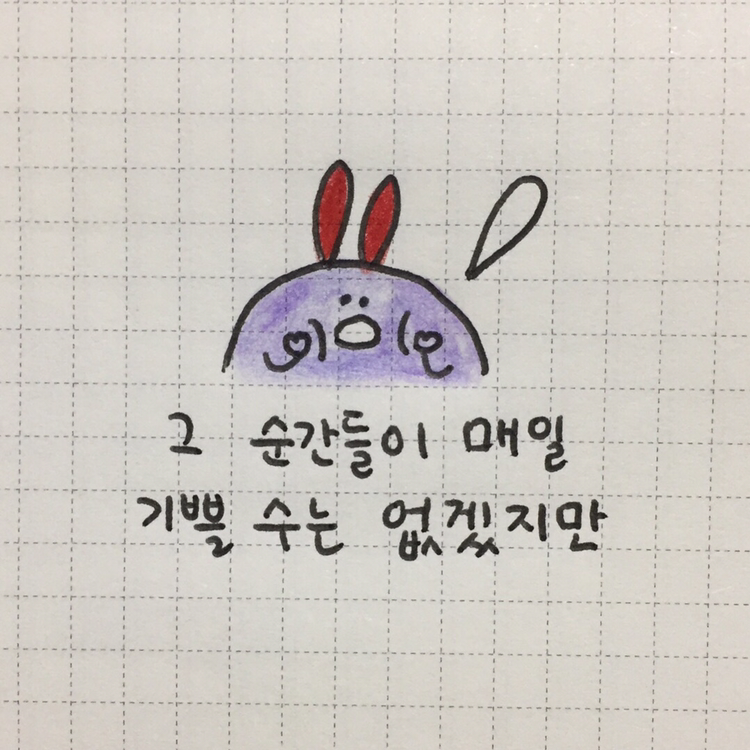 그 순간들이 매일
기쁠 수는 없겠지만